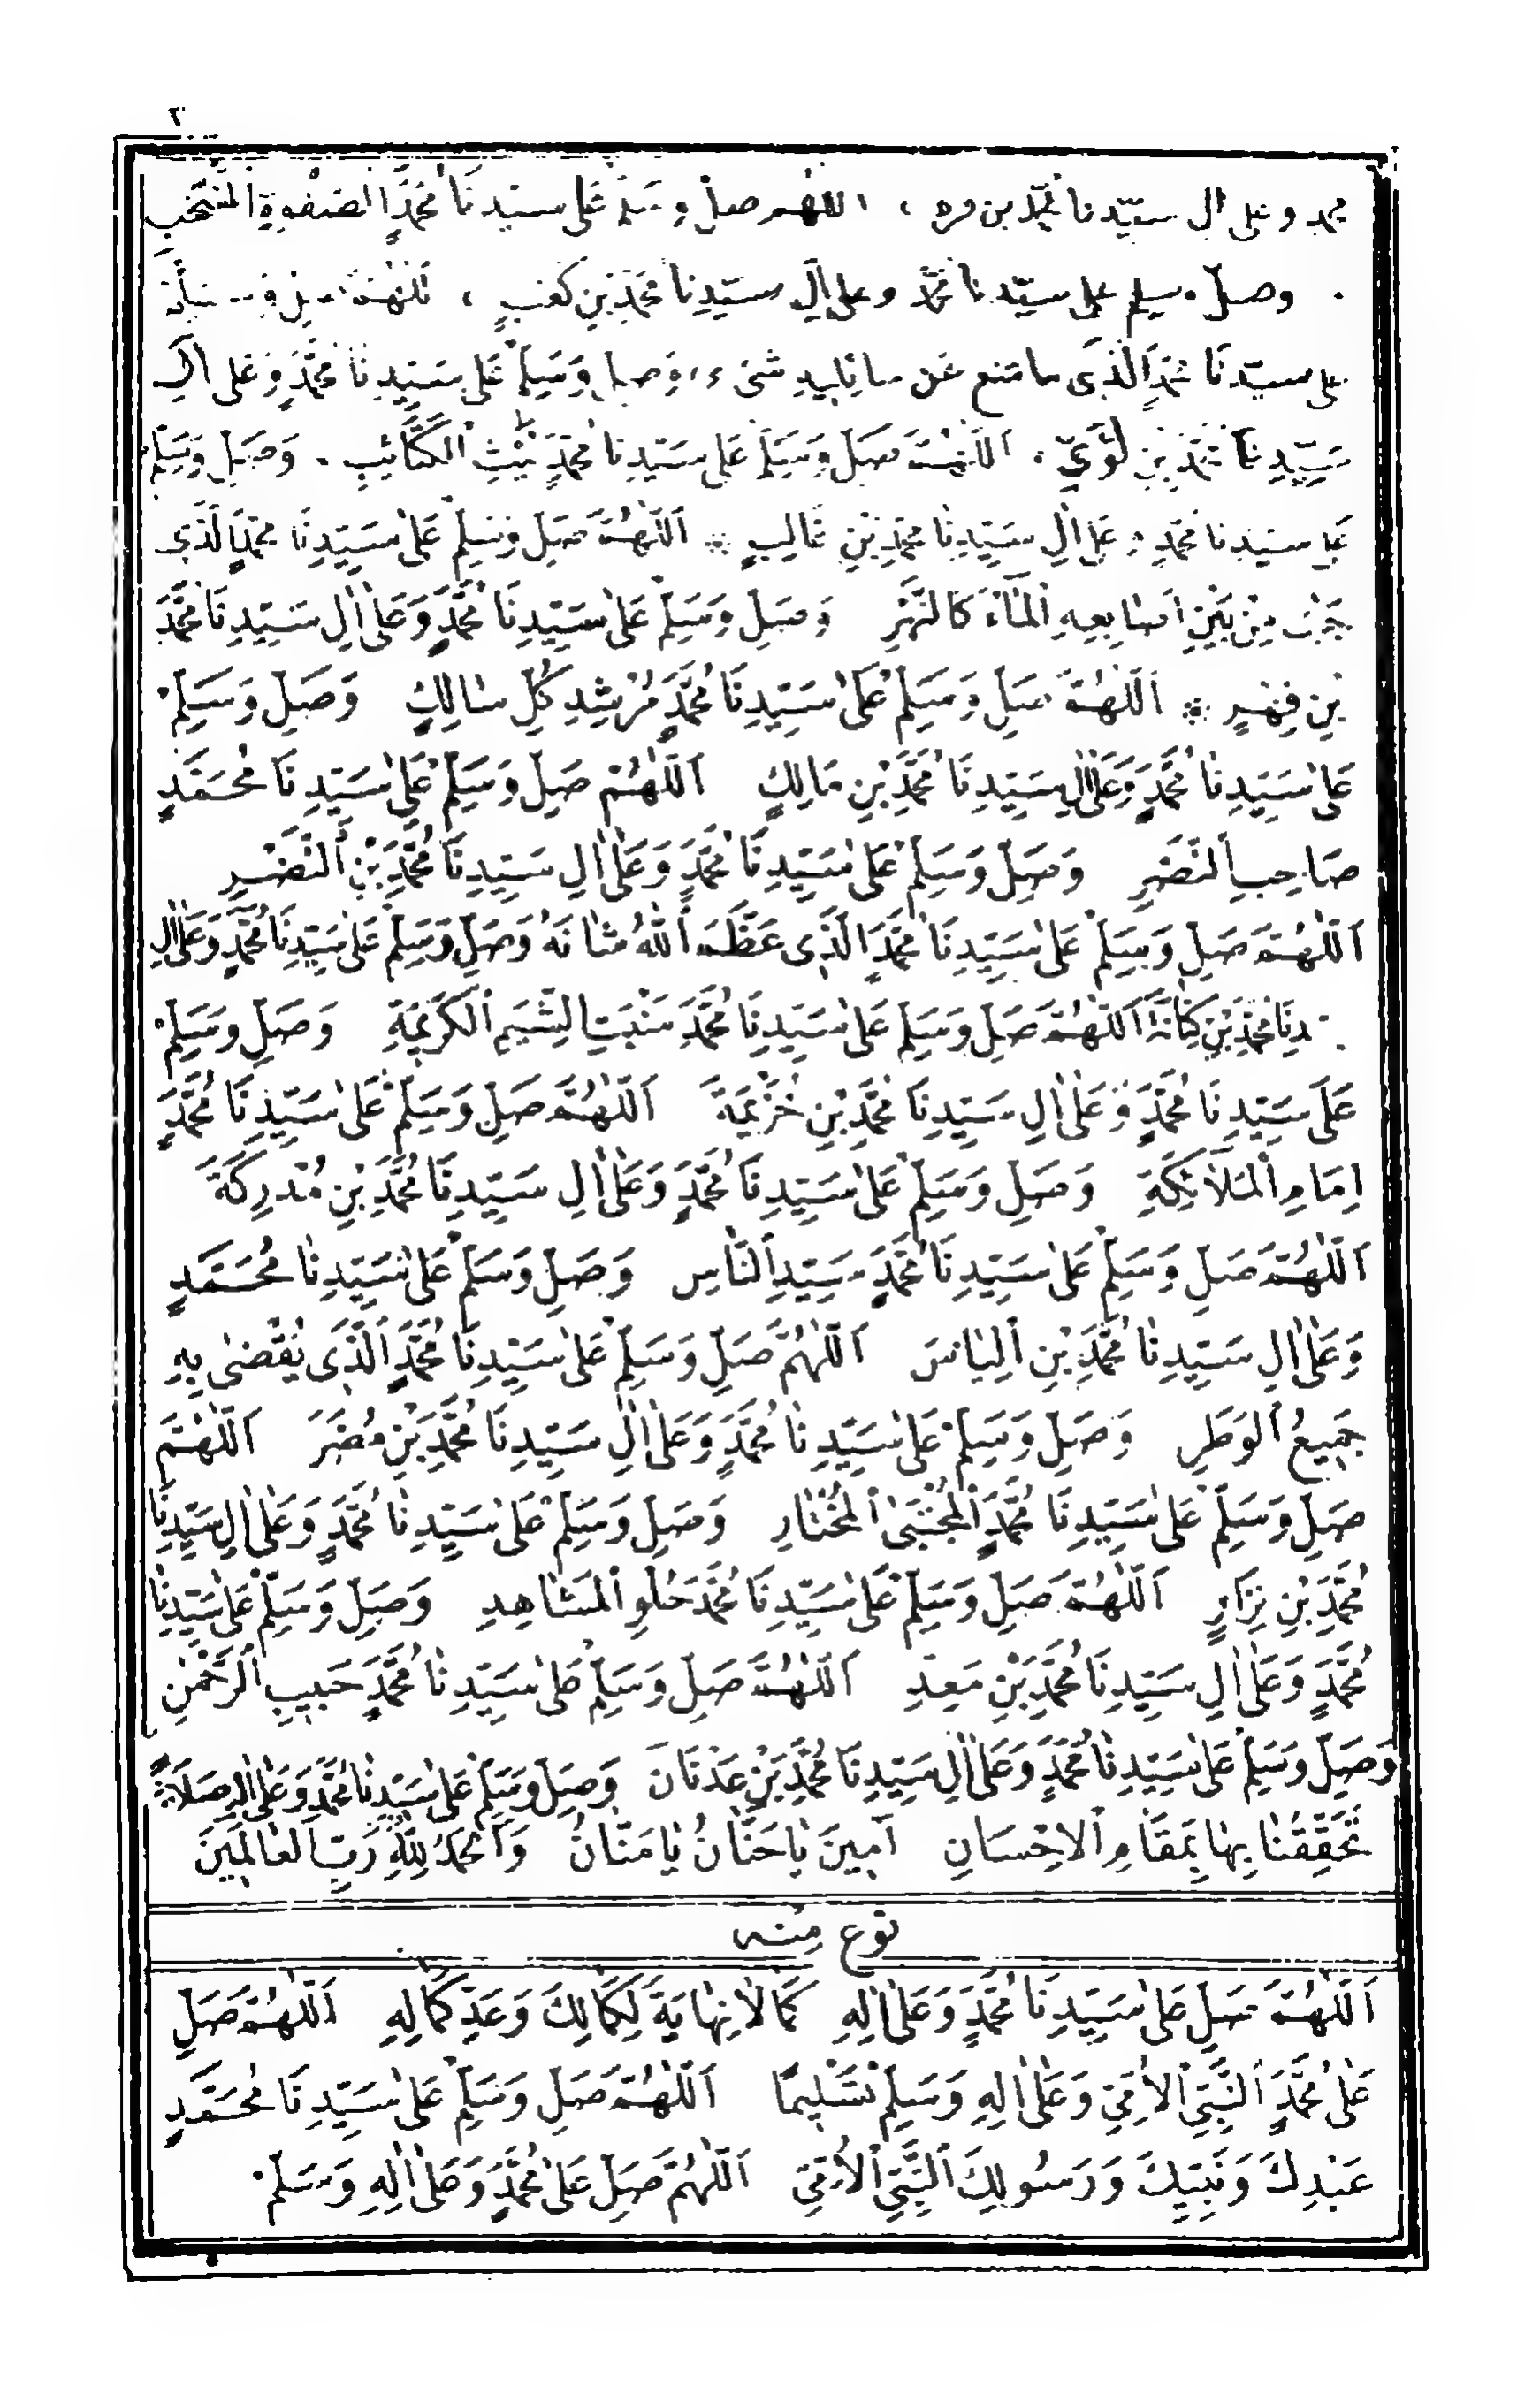 ٢
محمد وعلى ال سيّدنا محمّد بن مره ، اللهم صل وسلم على سيدنا محمَّدٍ الصفوة المنتخب
وصل وسلم على سيّدنا محمَّد وعلى اٰلِ سيّدِنا محمَّدِ بْنِ كَعْبٍ ، اَللهُمَّ صلِّ وسلم
على سيّدنَا محمدٍ الَّذى ما منع عن سائليه شئ ، وَصل وَسَلِّمْ عَلىٰ سَيِّدِنَا مُحَمَّدٍ وَعَلىٰ اٰلِ
سَيِّدِنَا مُحَمَّدِ بْنِ لُؤَيٍّ . اَللّٰهُمَّ صَلِّ وَسَلِّمْ عَلىٰ سَيِّدِنَا مُحَمَّدٍ لَيْثِ الْكَتَائِبِ . وَصَلِّ وَسَلِّمْ
عَلىٰ سَيّدِنا مُحَمَّدٍ وَعَلىٰ اٰلِ سَيِّدِنَا مُحَمَّدِ بْنِ غَالِبٍ * اَللّٰهُمَّ صَلِّ وَسَلِّمْ عَلىٰ سَيِّدِنَا مُحَمَّدٍ الَّذِى
جَرٰى مِنْ بَيْنِ اَصَابِعِهِ الْمَاءُ كَالنَّهَرِ وَصَلِّ وَسَلِّمْ عَلىٰ سَيِّدِنَا مُحَمَّدٍ وَعَلىٰ اٰلِ سَيِّدِنَا مُحَمَّدِ
بْنِ فِهْرٍ * اَللّٰهُمَّ صَلِّ وَسَلِّمْ عَلىٰ سَيِّدِنَا مُحَمَّدٍ مُرْشِدِ كُلِّ سَالِكٍ وَصَلِّ وَسَلِّمْ
عَلىٰ سَيِّدِنَا مُحَمَّدٍ وَعَلىٰ اٰلِ سَيِّدِنَا مُحَمَّدِ بْنِ مَالِكٍ اَللّٰهُمَّ صَلِّ وَسَلِّمْ عَلىٰ سَيِّدِنَا مُحَمَّدٍ
صَاحِبِ النَّصْرِ وَصَلِّ وَسَلِّمْ عَلىٰ سَيِّدِنَا مُحَمَّدٍ وَعَلىٰ اٰلِ سَيِّدِنَا مُحَمَّدِ بْنِ النَّضْرِ
اَللّٰهُمَّ صَلِّ وَسَلِّمْ عَلىٰ سَيِّدِنَا مُحَمَّدٍ الَّذِى عَظَّمَ اللّٰهُ شَانَهُ وَصَلِّ وَسَلِّمْ عَلىٰ سَيِّدِنَا مُحَمَّدٍ وَعَلىٰ اٰلِ
دِنَا مُحَمَّدِ بْنِ كِنَانَةَ اَللّٰهُمَّ صَلِّ وَسَلِّمْ عَلىٰ سَيِّدِنَا مُحَمَّدٍ مَنْبَتِ الشِّيَمِ الْكَرِيمَةِ وَصَلِّ وَسَلِّمْ
عَلىٰ سَيِّدِنَا مُحَمَّدٍ وَعَلىٰ اٰلِ سَيِّدِنَا مُحَمَّدِ بْنِ خُزَيْمَةَ اَللّٰهُمَّ صَلِّ وَسَلِّمْ عَلىٰ سَيِّدِنَا مُحَمَّدٍ
اِمَامِ الْمَلَائِكَةِ وَصَلِّ وَسَلِّمْ عَلىٰ سَيِّدِنَا مُحَمَّدٍ وَعَلىٰ اٰلِ سَيِّدِنَا مُحَمَّدِ بْنِ مُدْرِكَةَ
اَللّٰهُمَّ صَلِّ وَسَلِّمْ عَلىٰ سَيِّدِنَا مُحَمَّدٍ سَيِّدِ النَّاسِ وَصَلِّ وَسَلِّمْ عَلىٰ سَيِّدِنَا مُحَمَّدٍ
وَعَلىٰ اٰلِ سَيِّدِنَا مُحَمَّدِ بْنِ اِلْيَاسَ اَللّٰهُمَّ صَلِّ وَسَلِّمْ عَلىٰ سَيِّدِنَا مُحَمَّدٍ الَّذِى يُقْضٰى بِهِ
جَمِيعُ الْوَطَرِ وَصَلِّ وَسَلِّمْ عَلىٰ سَيِّدِنَا مُحَمَّدٍ وَعَلىٰ اٰلِ سَيِّدِنَا مُحَمَّدِ بْنِ مُضَرَ اَللّٰهُمَّ
صَلِّ وَسَلِّمْ عَلىٰ سَيِّدِنَا مُحَمَّدٍ الْمُجْتَبَى الْمُخْتَارِ وَصَلِّ وَسَلِّمْ عَلىٰ سَيِّدِنَا مُحَمَّدٍ وَعَلىٰ اٰلِ سَيِّدِنَا
مُحَمَّدِ بْنِ نِزَارٍ اَللّٰهُمَّ صَلِّ وَسَلِّمْ عَلىٰ سَيِّدِنَا مُحَمَّدٍ حُلْوِ الْمَشَاهِدِ وَصَلِّ وَسَلِّمْ عَلىٰ سَيِّدِنَا
مُحَمَّدٍ وَعَلىٰ اٰلِ سَيِّدِنَا مُحَمَّدِ بْنِ مَعِدِ اَللّٰهُمَّ صَلِّ وَسَلِّمْ عَلىٰ سَيِّدِنَا مُحَمَّدٍ حَبِيبِ الرَّحْمٰنِ
وَصَلِّ وَسَلِّمْ عَلىٰ سَيِّدِنَا مُحَمَّدٍ وَعَلىٰ اٰلِ سَيِّدِنَا مُحَمَّدِ بْنِ عَدْنَانَ وَصَلِّ وَسَلِّمْ عَلىٰ سَيِّدِنَا مُحَمَّدٍ وَعَلىٰ اٰلِهِ صَلَاةً
تُحَقِّقُنَا بِهَا بِمَقَامِ الْاِحْسَانِ اٰمِينَ يَا حَنَّانُ يَا مَنَّانُ وَالْحَمْدُ لِلّٰهِ رَبِّ الْعَالَمِينَ
نوع مِنْه
اَللّٰهُمَّ صَلِّ عَلىٰ سَيِّدِنَا مُحَمَّدٍ وَعَلىٰ اٰلِهِ كَمَا لَا نِهَايَةَ لِكَمَالِكَ وَعَدِّ كَمَالِهِ اَللّٰهُمَّ صَلِّ
عَلىٰ مُحَمَّدٍ النَّبِيِّ الْاُمِّيِّ وَعَلىٰ اٰلِهِ وَسَلِّمْ تَسْلِيمًا اَللّٰهُمَّ صَلِّ وَسَلِّمْ عَلىٰ سَيِّدِنَا مُحَمَّدٍ
عَبْدِكَ وَنَبِيِّكَ وَرَسُولِكَ النَّبِيِّ الْاُمِّيِّ اَللّٰهُمَّ صَلِّ عَلىٰ مُحَمَّدٍ وَعَلىٰ اٰلِهِ وَسَلِّمْ